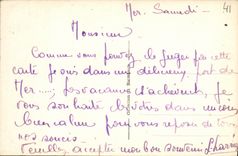 Mer. Samedi -
41
Monsieur
Comme vous pouvez le juger par cette
carte je suis dans un délicieux port de
Mer...., les vacances s'achèvent, je
vous souhaite les vôtres dans un coin
bien calme pour vous reposer de tous
vos soucis.
Veuillez accepter mon bon souvenir